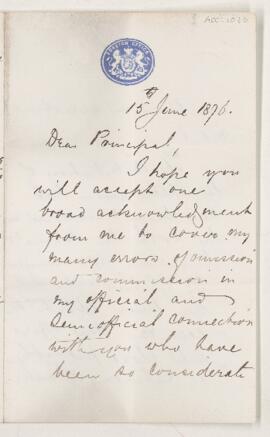 FOREIGN OFFICE
15th June 1896.
Dear Principal,
I hope you
will accept one
broad acknowledgment
from me to cover my
many errors of omission
and commission in
my official and
semi official connection
with you who have
been so considerate